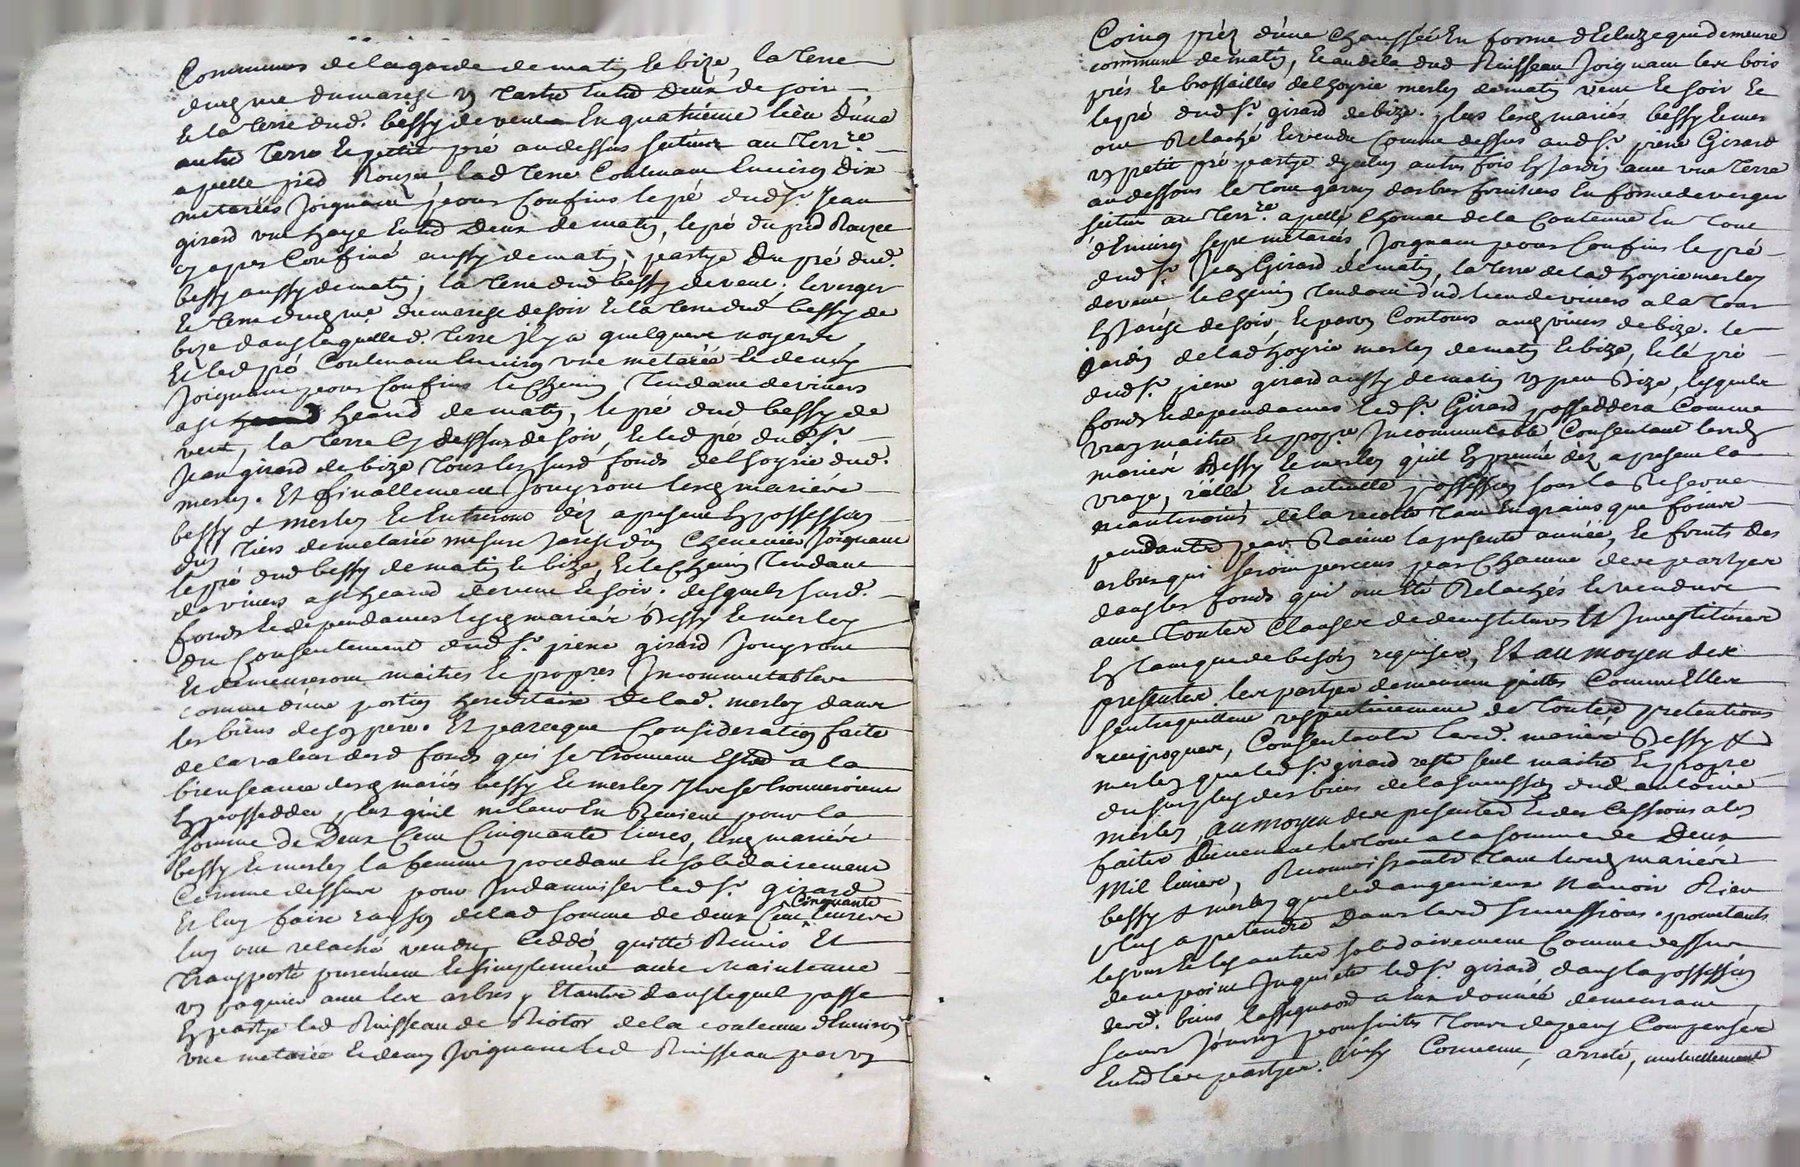 Communes de lagarde de matin et bize, la terre
du sr. dumarest un tartre entre deux de soir
et la terre dud. bessy de vent En quatrieme lieu d'une
autre terre et petit pré au dessus scitués au terr.re
apellé pied Rouzu lad terre Contenant Environ dix
métarées joignant pour Confins le pré dud sr. Jean
girard une haye entre deux de matin, le pré du pied Rouzu
cy apres Confiné aussy de matin, partye du pré dud.
bessy aussy de matin, la terre dud bessy de vent; le verger
et terre du sr. dumarest de soir et la terre dud bessy de
bize dans laquelle d. terre il y a quelques noyers
Et led pré Contenant Environ une métarée et demy
joignant pour Confins le chemin tendant de viviers
a st heand de matin, le pré dud bessy de
vent, la terre cy dessus de soir, et led pré dud sr.
Jean girard de bize tous les susd fonds de l'hoyrie dud.
merley. Et finallement Jouyront lesd mariés
bessy & merley et Entreront dez a present En possession
du tiers de métarée mesure jarest d'un chenevier joignant
le pré dud bessy de matin et bize, et le chemin tendant
de viviers a st heand de vent et soir. desquels susd.
fonds et dependances lesd mariés Bessy et merley
du Consentement dud sr. piere girard Jouyront
et demeureront maitres et propres Incommutables
comme d'une portion hereditaire de lad. merley dans
les biens de son pere. Et parceque Consideration faite
de la valeur desd fonds qui se trouvent Estre a la
bienseance desd mariés bessy et merley Ils se trouveroient
En posseder plus qu'il ne leur En Revient pour la
somme de Deux Cent Cinquante livres, lesd mariés
bessy et merley la femme procedant et solidairement
Comme dessus pour Indamniser led sr. girard
et luy faire rayson de lad somme de deux Cent Cinquante livres
luy ont relaché vendu, ceddé, quitté Remis Et
transporté purement et simplement avec Maintenue
un paquier avec les arbres y Etants dans lequel passe
En partye led Ruisseau de Riotor de la contenue d'Environ
une metarée et demy joignant led Ruisseau par un
Coing prés d'une chaussée En forme d'Ecluze qui demeure
commune de matin, Et au dela dud Ruisseau joignant les bois
prés et brossailles de l'hoyrie merley de matin vent et soir Et
le pré dud sr. girard de bize. plus lesd mariés bessy & merley
ont Relaché et vendu Comme dessus aud sr. piere Girard
un petit pré partye d'yceluy autres fois En Jardin avec une terre
au dessous le tout garny d'arbres fruitiers En forme de verger
scitué au terr.re apellé Chomas de la Contenue En tout
d'Environ sept métarées, joignant pour Confins le pré
dud sr. Jean Girard de matin, la terre de lad hoyrie merley
de vent le chemin tendant dud lieu de viviers a la tour
En Jarest de soir, et par un Contour aud viviers de bize. le
Jardin de lad hoyrie merley de matin et bize, et le pré
dud sr. piere girard aussy de matin un peu Bize, lesquels
fonds et dependances led sr. Girard posseddera Comme
vray maitre et propre Incommutable Consentant lesd
mariés Bessy et merley qu'il En prenne dez a present la
vraye, réelle Et actuelle possession sous la Reserve
neantmoins de la recolte tant En grains que foins
pendants par Racine la presente année, et fruits des
arbres qui seront perceus par Chacune des partyes
dans les fonds qui ont Eté Relachés et vendus
avec toutes Clauses de demistitures Et Investitures
En tant que de besoin requises, Et au moyen des
presentes les partyes demeurent quittes Comme Elles
s'entrequittent respectivement de toutes pretentions
reciproques, Consentants lesd. mariés Bessy &
merley que led sr. girard reste seul maitre et propre
du surplus des biens de la succession dud antoine
merley, au moyen des presentes et des cessions a luy
faites Revenant le tout a la somme de Deux
Mil livres, Reconnoissants tant lesd mariés
bessy & merley que led angenieux n'avoir Rien
plus a pretendre Dans lesd successions. promettants
les uns et les autres solidairement Comme dessus
de ne point Inquieter led sr. girard dans la possession
desd. biens l'assignation a luy donnée demeurant
sans Jouvrir poursuites tous depens Compensés
entre les partyes. Ainsy Convenu, arreté, mutuellement